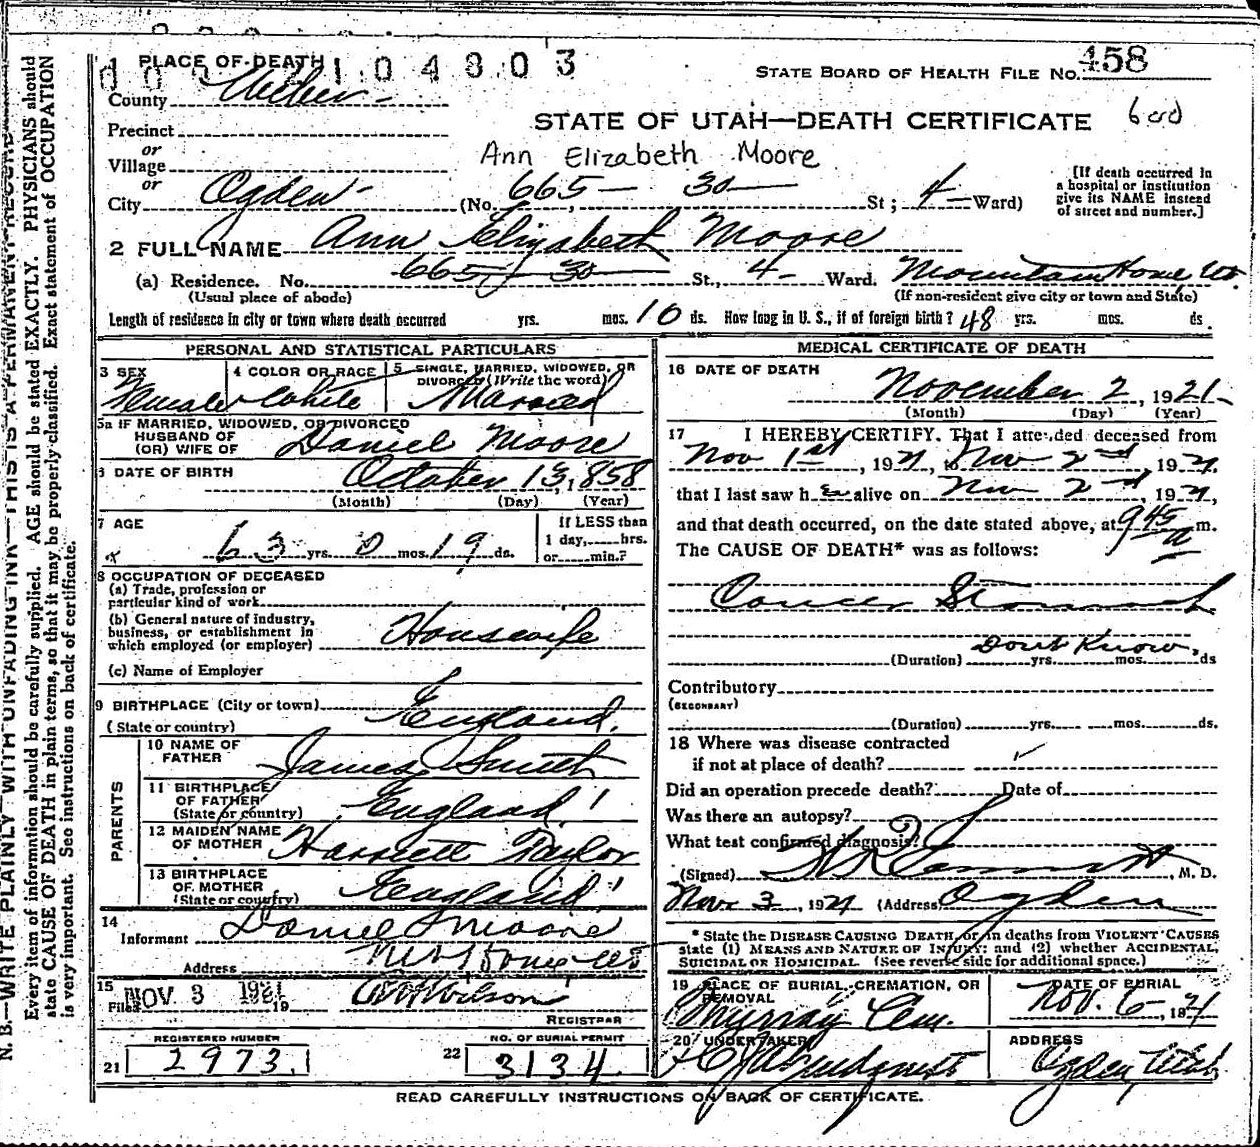 1 PLACE OF DEATH 2104803
STATE BOARD OF HEALTH FILE No. 458
County Weber
STATE OF UTAH—DEATH CERTIFICATE
Precinct
or
Village
Ann Elizabeth Moore
or
City Ogden (No. 665 — 30 — St; 4 — Ward)
[If death occurred in a hospital or institution give its NAME instead of street and number.]
2 FULL NAME Ann Elizabeth Moore
(a) Residence. No. 665 - 30 St., 4 - Ward. Mountain Home, Ut.
(Usual place of abode) (If non-resident give city or town and State)
Length of residence in city or town where death occurred yrs. mos. 10 ds. How long in U. S., if of foreign birth? 48 yrs. mos. ds.
PERSONAL AND STATISTICAL PARTICULARS
3 SEX Female
4 COLOR OR RACE White
5 SINGLE, MARRIED, WIDOWED, OR DIVORCED (Write the word) Married
5a IF MARRIED, WIDOWED, OR DIVORCED
HUSBAND OF
(OR) WIFE OF Daniel Moore
6 DATE OF BIRTH October 13, 1858
(Month) (Day) (Year)
7 AGE 63 yrs. 0 mos. 19 ds.
If LESS than
1 day, hrs.
or min.?
8 OCCUPATION OF DECEASED
(a) Trade, profession or
particular kind of work
(b) General nature of industry,
business, or establishment in
which employed (or employer) Housewife
(c) Name of Employer
9 BIRTHPLACE (City or town)
(State or country) England.
PARENTS
10 NAME OF
FATHER James Smith
11 BIRTHPLACE
OF FATHER
(State or country) England
12 MAIDEN NAME
OF MOTHER Harriett Taylor
13 BIRTHPLACE
OF MOTHER
(State or country) England
14
Informant Daniel Moore
Address Mt Home Ut
15
Filed NOV 3 1921 19
Wilson
REGISTRAR
REGISTERED NUMBER
21 2973.
NO. OF BURIAL PERMIT
22 3134
MEDICAL CERTIFICATE OF DEATH
16 DATE OF DEATH
November 2, 1921
(Month) (Day) (Year)
17 I HEREBY CERTIFY, That I attended deceased from
Nov 1st, 1921, to Nov 2nd, 1921.
that I last saw her alive on Nov 2nd, 1921,
and that death occurred, on the date stated above, at 9 45 a m.
The CAUSE OF DEATH* was as follows:
Cancer Stomach
(Duration) Dont Know. yrs. mos. ds
Contributory
(SECONDARY)
(Duration) yrs. mos. ds.
18 Where was disease contracted
if not at place of death?
Did an operation precede death? Date of
Was there an autopsy?
What test confirmed diagnosis?
(Signed) , M. D.
Nov 3, 1921 (Address) Ogden
* State the DISEASE CAUSING DEATH, or in deaths from VIOLENT CAUSES
state (1) MEANS AND NATURE OF INJURY; and (2) whether ACCIDENTAL,
SUICIDAL OR HOMICIDAL. (See reverse side for additional space.)
19 PLACE OF BURIAL, CREMATION, OR
REMOVAL
Murray Cem.
DATE OF BURIAL
Nov. 6, 1921
20 UNDERTAKER
Lindquist
ADDRESS
Ogden, Utah
READ CAREFULLY INSTRUCTIONS ON BACK OF CERTIFICATE.
N. B.—WRITE PLAINLY WITH UNFADING INK—THIS IS A PERMANENT RECORD
Every item of information should be carefully supplied. AGE should be stated EXACTLY. PHYSICIANS should
state CAUSE OF DEATH in plain terms, so that it may be properly classified. Exact statement of OCCUPATION
is very important. See instructions on back of certificate.